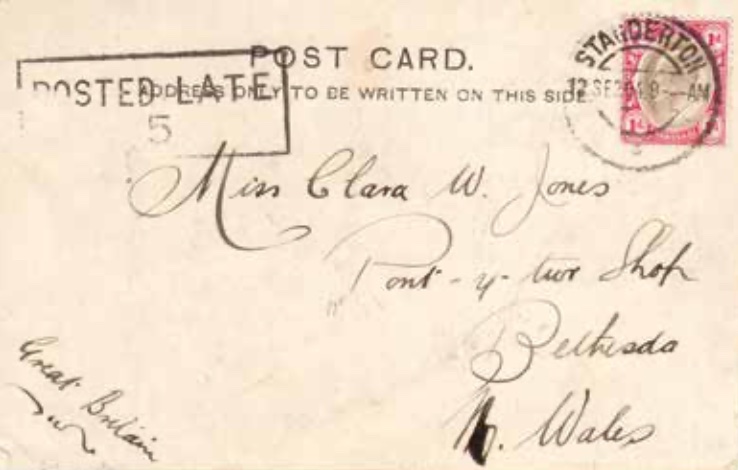 POST CARD.
ADDRESS ONLY TO BE WRITTEN ON THIS SIDE.
POSTED LATE
5
STANDERTON
AM
1d
1d
Miss Clara W. Jones
Pont-y-twr Shop
Bethesda
N. Wales
Great Britain